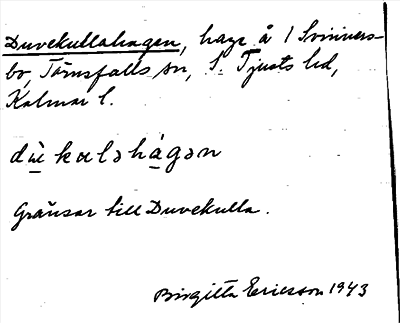 Duvekullahagen, hage å 1 Svinners-
bo, Törnsfalls sn, S. Tjusts hd,
Kalmar l.
dɯ̀ kɑləhágən
Gränsar till Duvekulla.
Birgitta Ericsson 1943